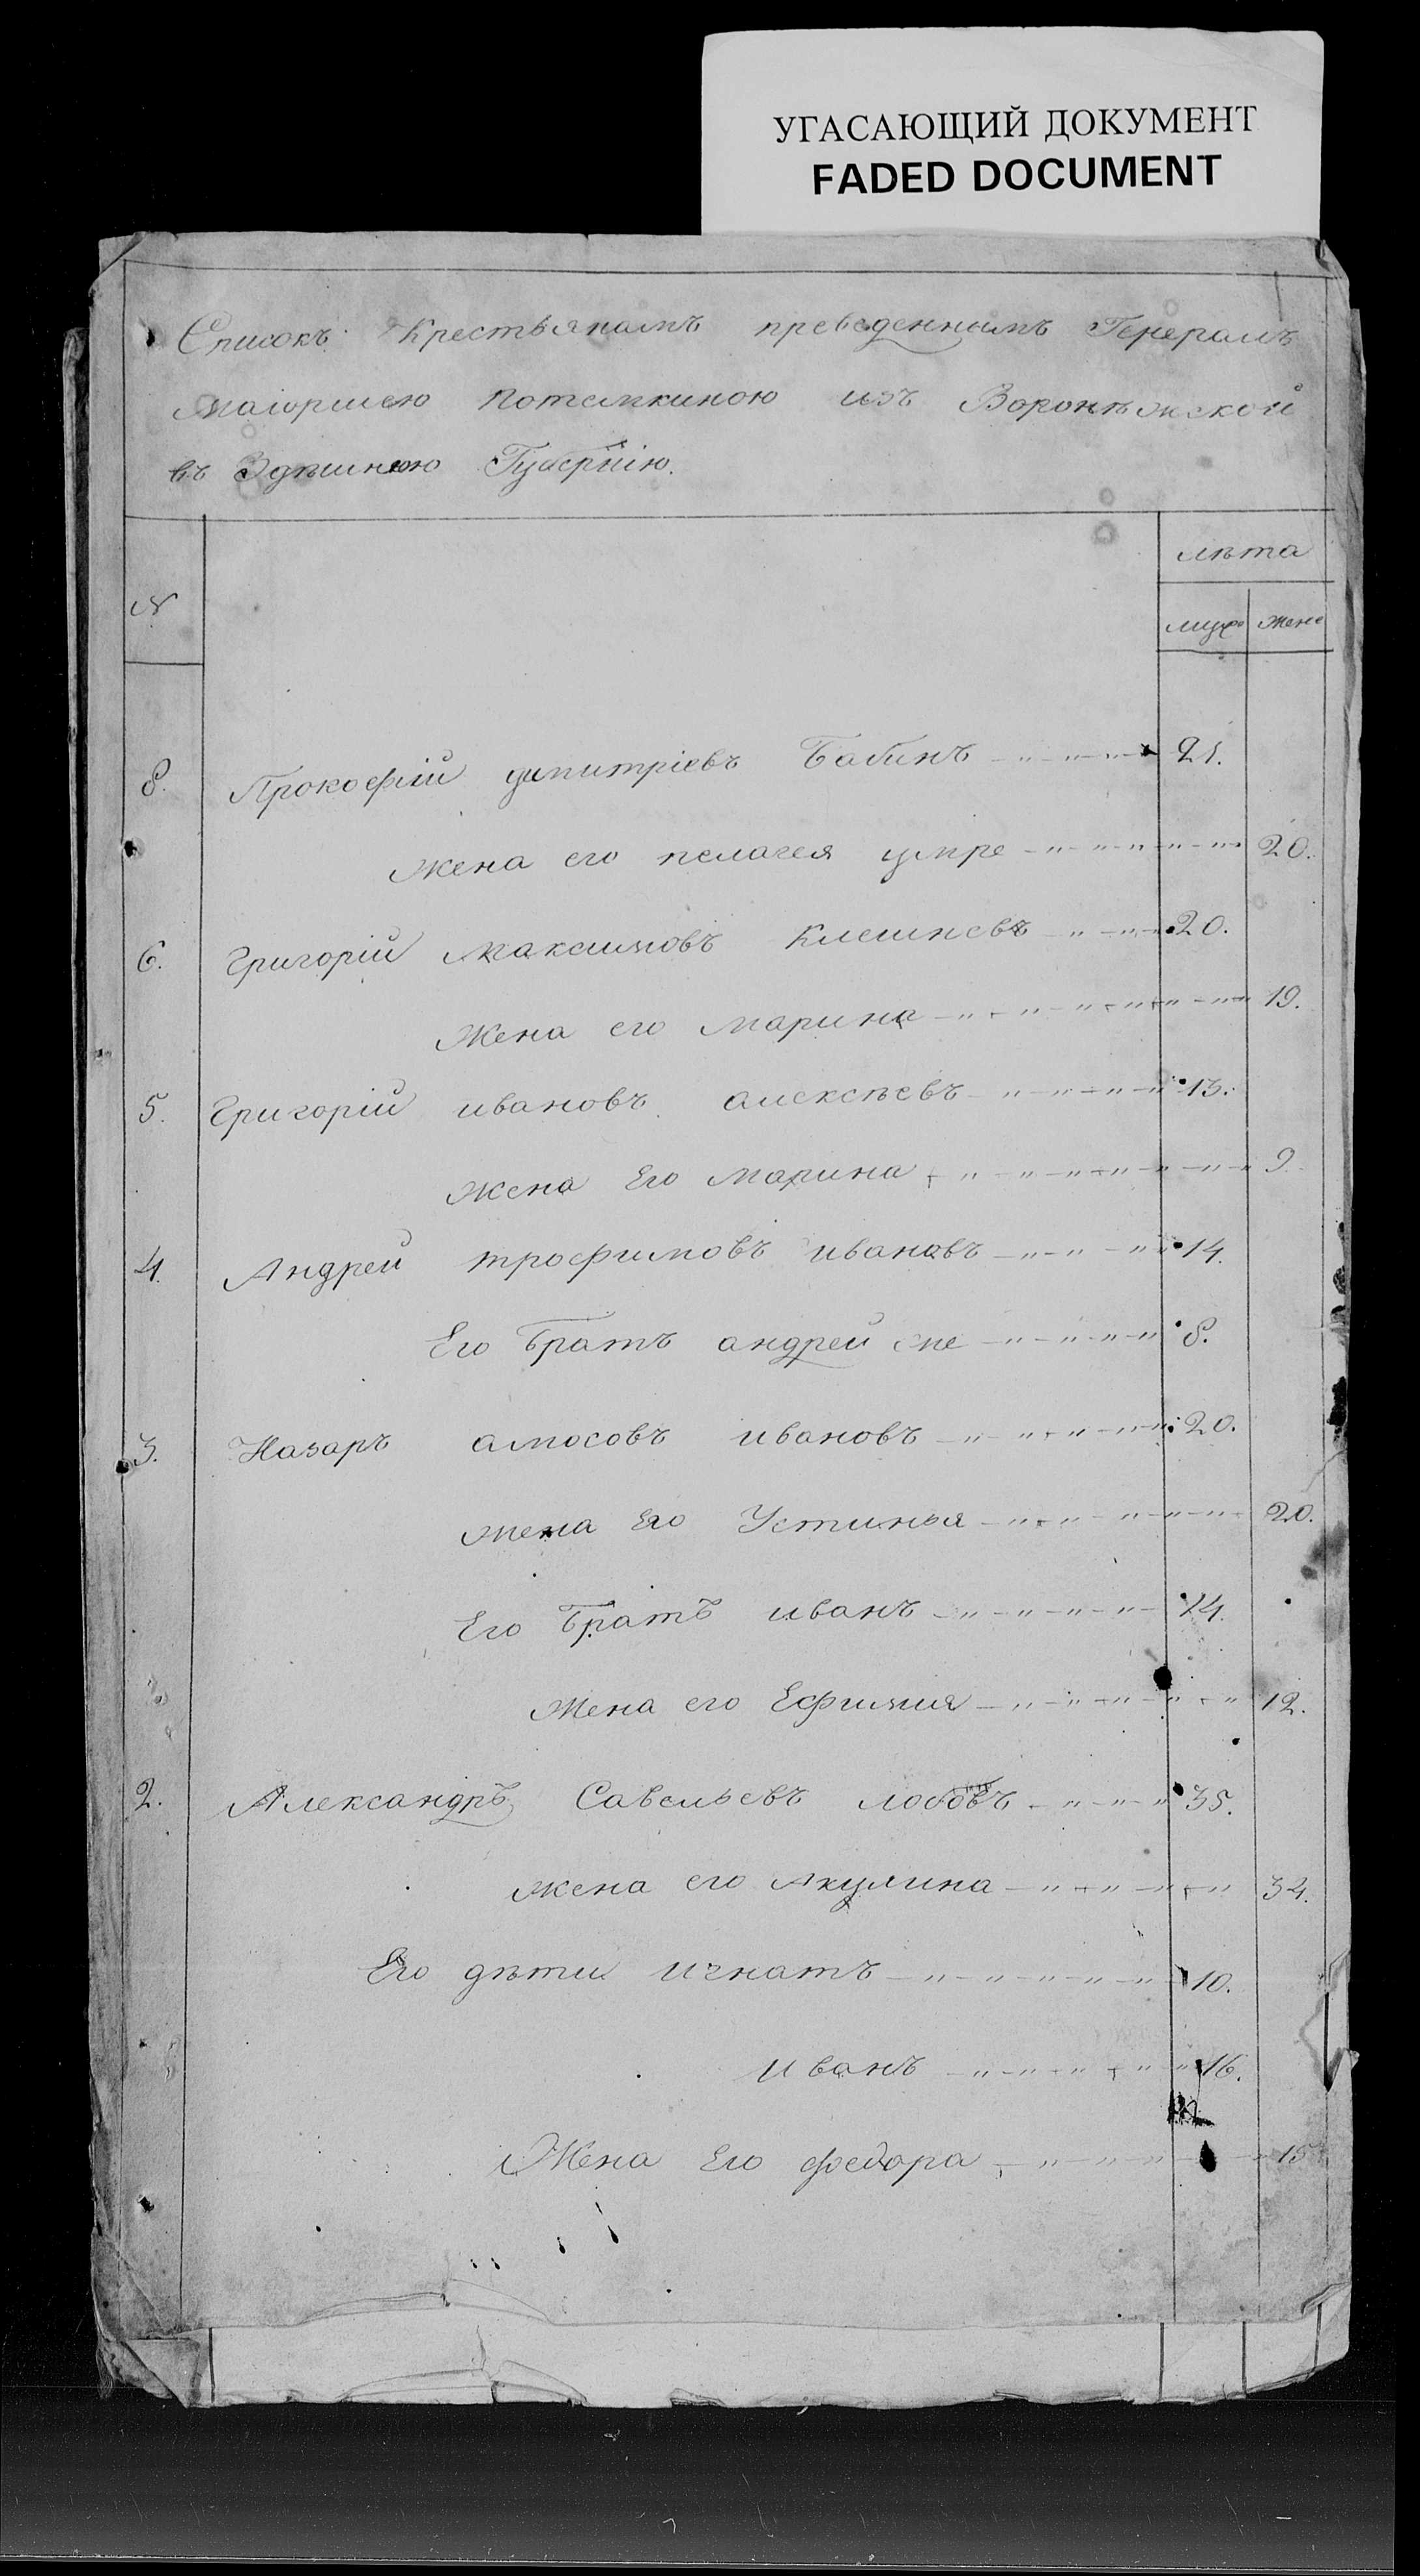 УГАСАЮЩИЙ ДОКУМЕНТ
FADED DOCUMENT
Списокъ Крестьянамъ преведеннымъ Генералъ
Маіоршею Потемкиною изъ Воронѣжской
въ Здѣшнюю Губернію.
лѣта
№ муж жен
8. Прокофій димитріевъ Бабинъ 21.
жена его пелагея умре 20.
6. Григорій Максимовъ Клешневъ 20.
Жена его Марина 19.
5. Григорій ивановъ алексѣевъ 13.
жена Его Марина 9
4. Андрей трофимовъ ивановъ 14.
Его Братъ андрей же 8.
3. Назаръ амосовъ ивановъ 20.
жена Его Устинья 20.
Его Братъ иванъ 14.
Жена его Ефимия 12.
2. Александръ Савельевъ лобовъ 35.
жена его Акулина 34.
Его дѣти игнатъ 10.
иванъ 16.
Жена Его федора 15